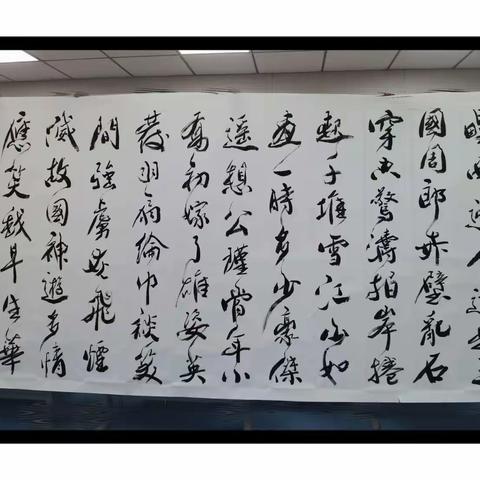 西邊人道是三
國周郎赤壁亂石
穿空驚濤拍岸捲
起千堆雪江山如
畫一時多少豪傑
遙想公瑾當年小
喬初嫁了雄姿英
發羽扇綸巾談笑
間強虜灰飛煙
滅故國神遊多情
應笑我早生華